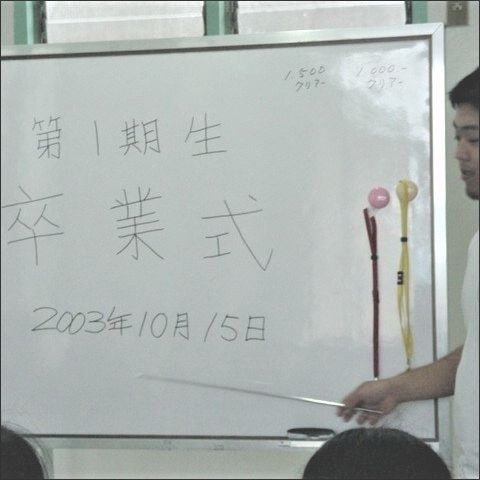 1,500 1,000-
クリアー クリアー
第1期生
卒業式
2003年10月15日